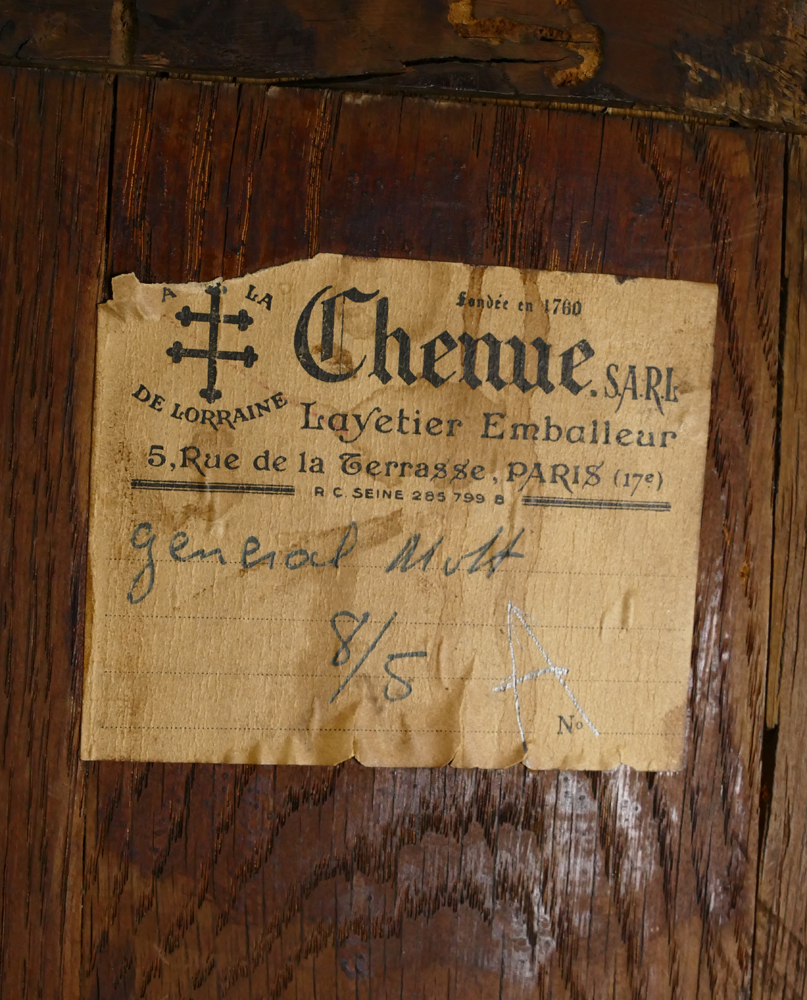 A LA
DE LORRAINE
Fondée en 1760
Chenue. S.A.R.L
Layetier Emballeur
5, Rue de la Terrasse, PARIS (17e)
R C. SEINE 285 799 B
general
8/5
A
No